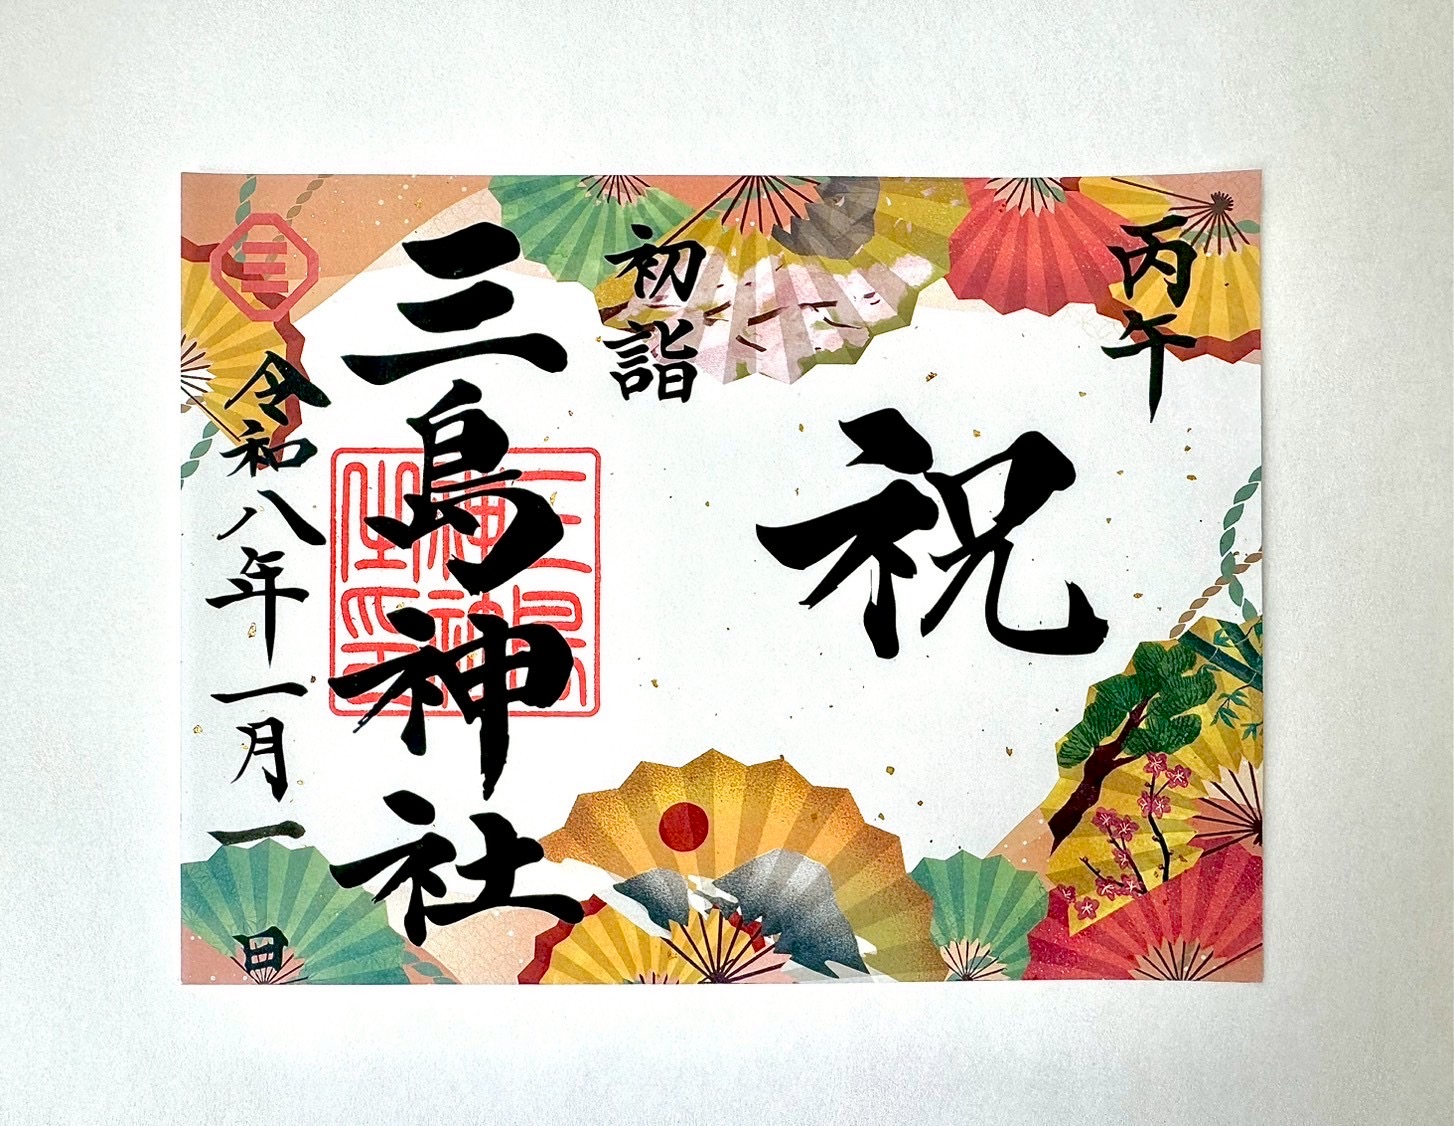 丙午
祝
初詣
三島神社
令和八年一月一日
三